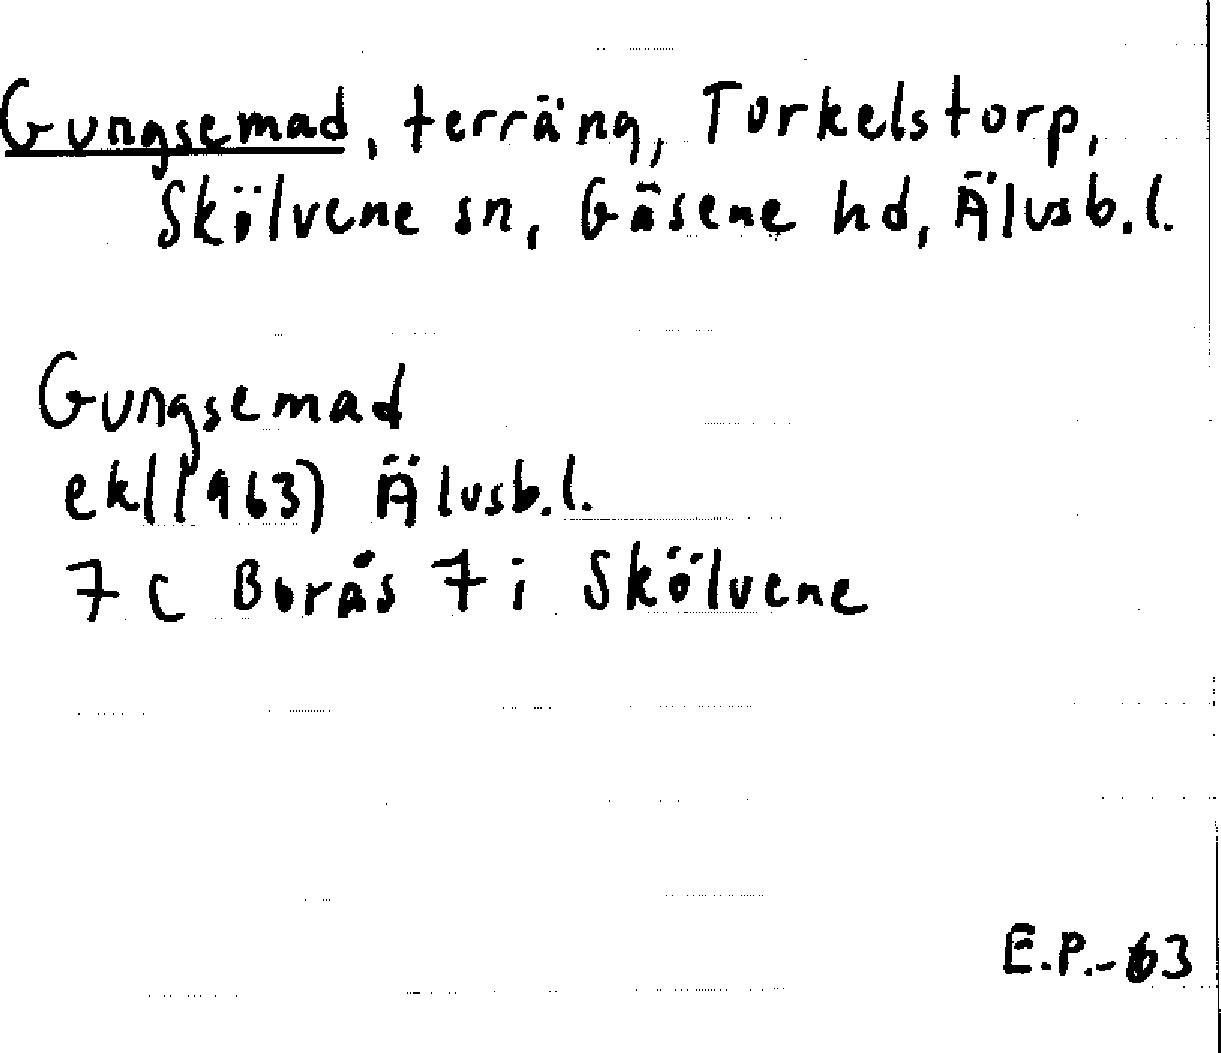 Gungsemad, terräng, Torkelstorp,
Skölvene sn, Gäsene hd, Älvsb.l.
Gungsemad
ek(1963) Älvsb.l.
7 C Borås 7 i Skölvene
E.P.-63